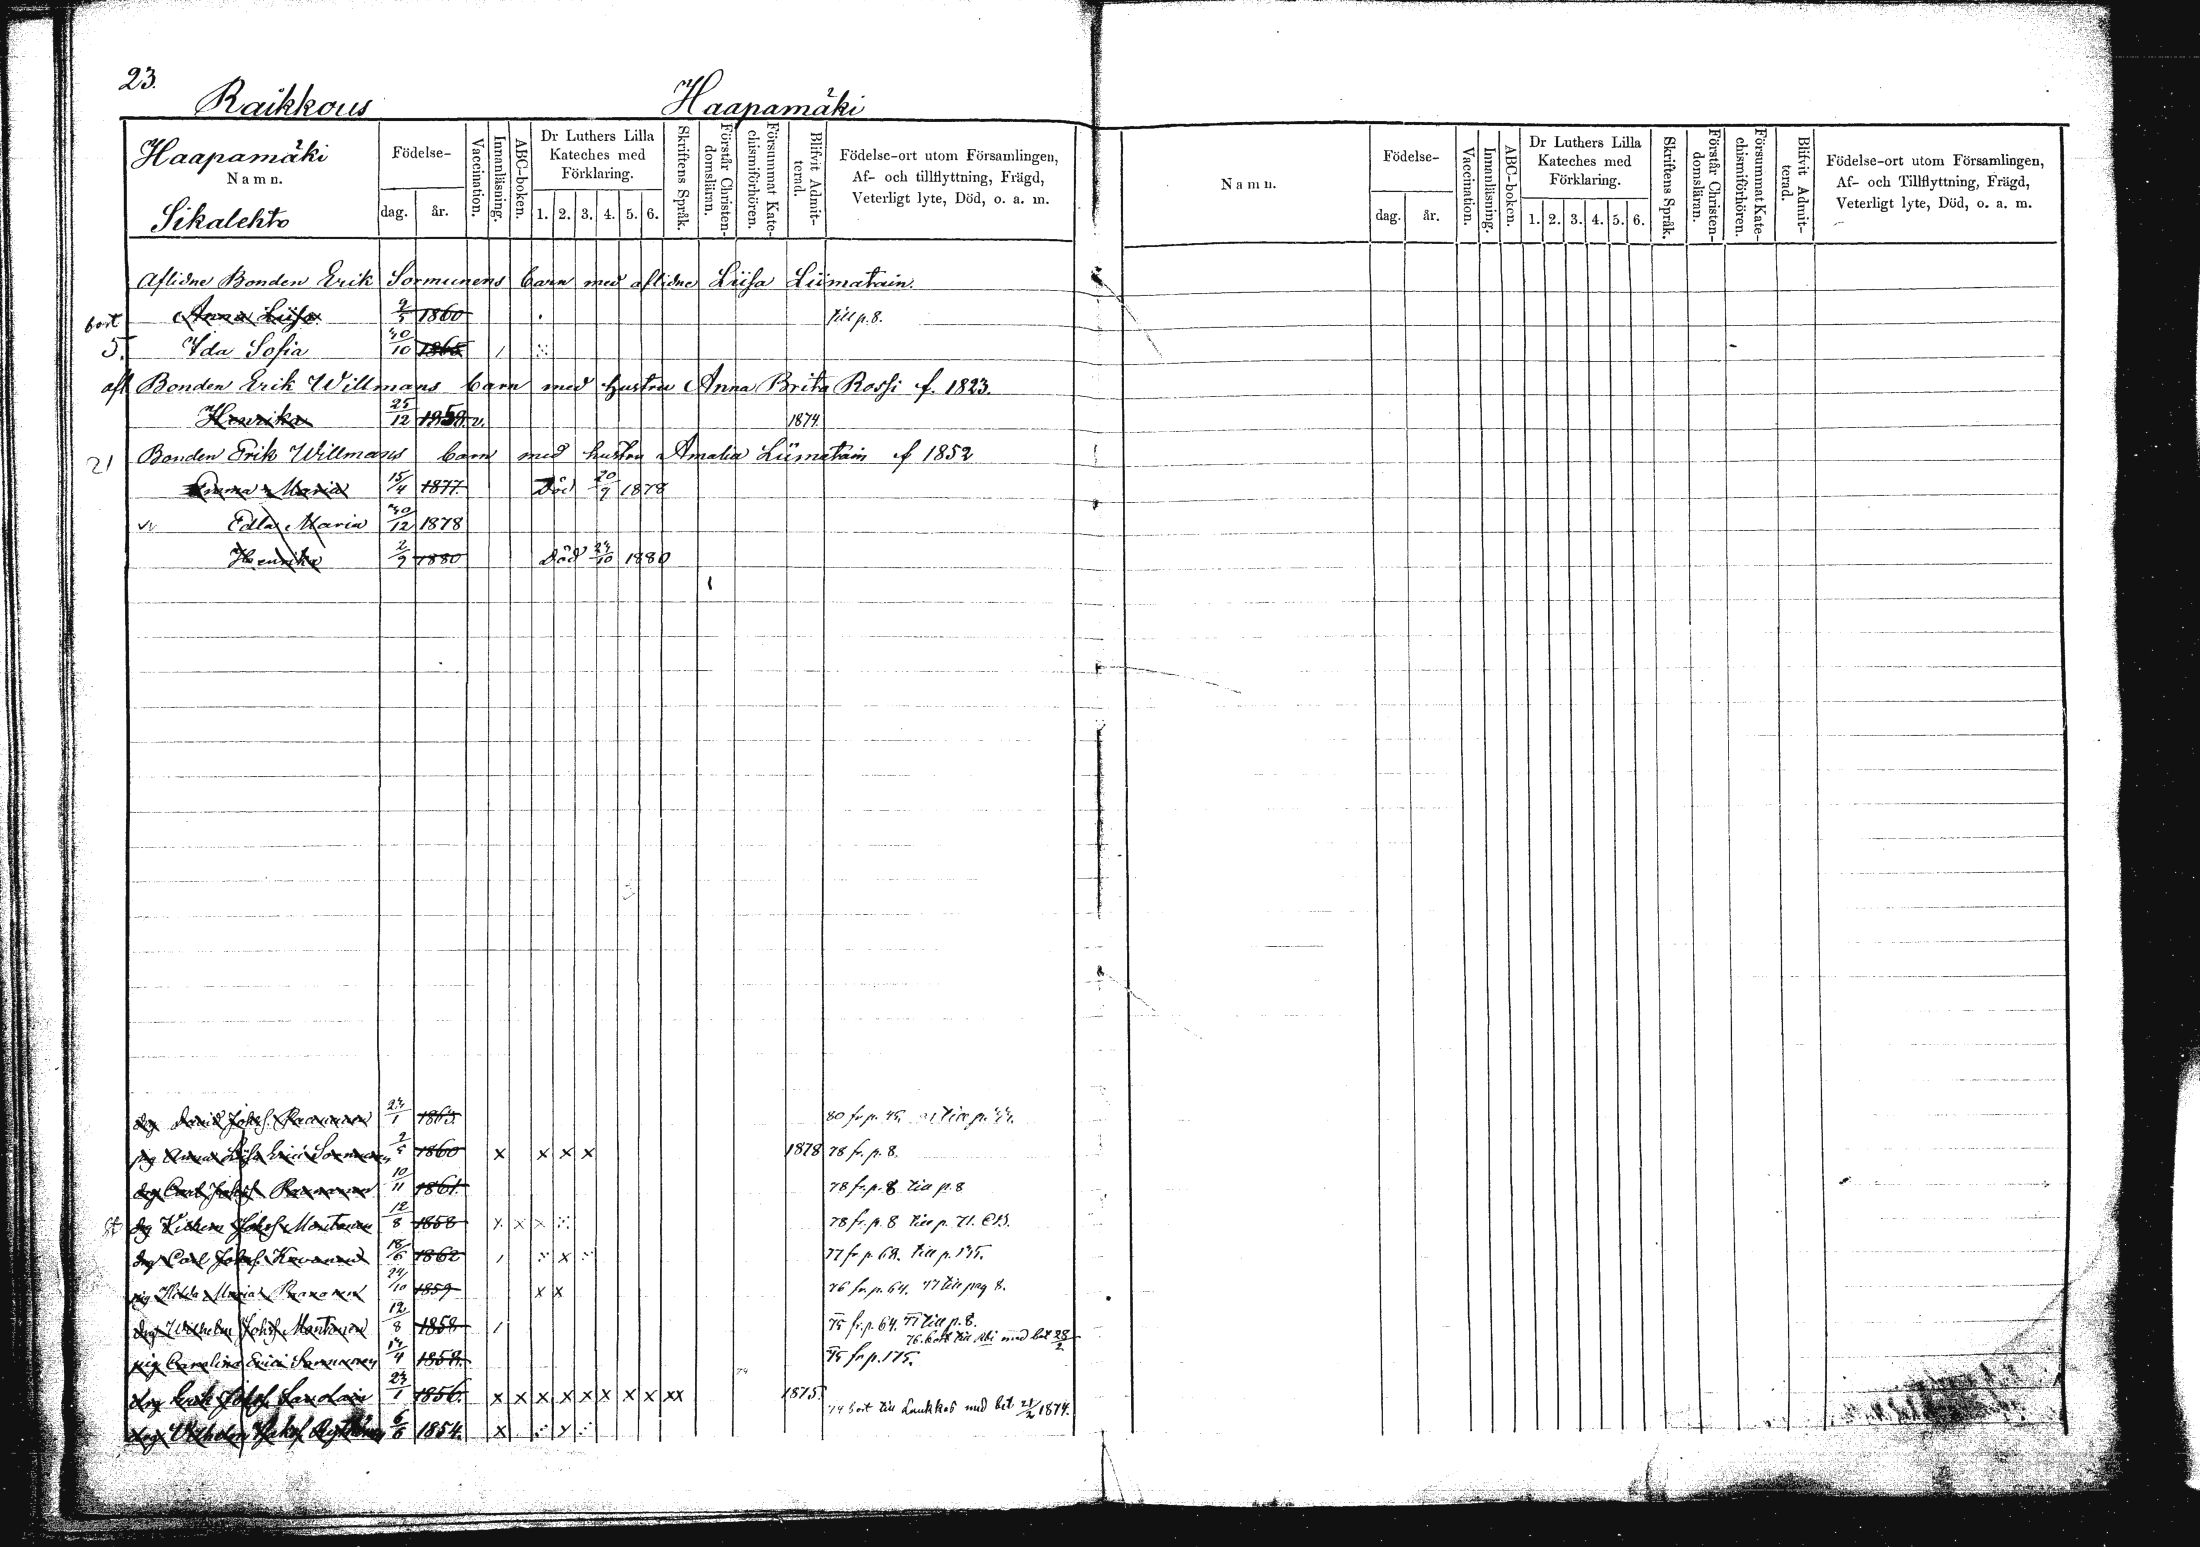 23.
Raikkous Haapamäki
Haapamäki
Namn.
Sikalehto
Födelse-
dag. år.
Vaccination.
Innanläsning.
ABC-boken.
Dr Luthers Lilla
Kateches med
Förklaring.
1. 2. 3. 4. 5. 6.
Skriftens Språk.
Förstår Christen-
domsläran.
Försummat Kate-
chismiförhören.
Blifvit Admit-
terad.
Födelse-ort utom Församlingen,
Af- och tillflyttning, Frägd,
Veterligt lyte, Död, o. a. m.
Aflidne Bonden Erik Sormunens barn med aflidne Liisa Liimatain.
bort Anna Liisa 2/5 1860 till p. 8.
5. Ida Sofia 30/10 1865
afl Bonden Erik Willmans barn med hustru Anna Brita Rossi f. 1823.
Henrika 25/12 1858. v. 1874.
21 Bonden Erik Willmans barn med hustru Amalia Liimatain f 1852
Emma Maria 15/4 1877. Död 20/9 1878
Edla Maria 30/12 1878
Henrika 2/9 1880 Död 23/10 1880
drg David Johs. 23/1 1863. 80 fr. p. 45. till p.
pig Anna Liisa Erici Sormunen 2/5 1860 x x x x 1878 78 fr. p. 8.
drg Carl 10/11 1861. 78 fr. p. 8 till p. 8
drg Johs Montonen 12/8 1858 x x x 78 fr. p. 8 till p. 71.
drg Carl Johs. 18/6 1862 x 77 fr p. 68. till p. 135.
pig Hilda Maria 24/10 1859 x x 76 fr. p. 64. 77 till pag 8.
drg Wilhelm Johs Montonen 12/8 1858 75 fr. p. 64. 77 till p. 8.
76. bort till Abi med bet 28/2
pig Carolina Erici Sormunen 13/4 1858. 75 fr p. 175.
drg Erik Johs. 23/1 1856. x x x x x x x x xx 1875.
74 bort till Laukkas med bet 21/2 1874.
drg Wilhelm 6/6 1854. x x
Namn.
Födelse-
dag. år.
Vaccination.
Innanläsning.
ABC-boken.
Dr Luthers Lilla
Kateches med
Förklaring.
1. 2. 3. 4. 5. 6.
Skriftens Språk.
Förstår Christen-
domsläran.
Försummat Kate-
chismiförhören.
Blifvit Admit-
terad.
Födelse-ort utom Församlingen,
Af- och Tillflyttning, Frägd,
Veterligt lyte, Död, o. a. m.